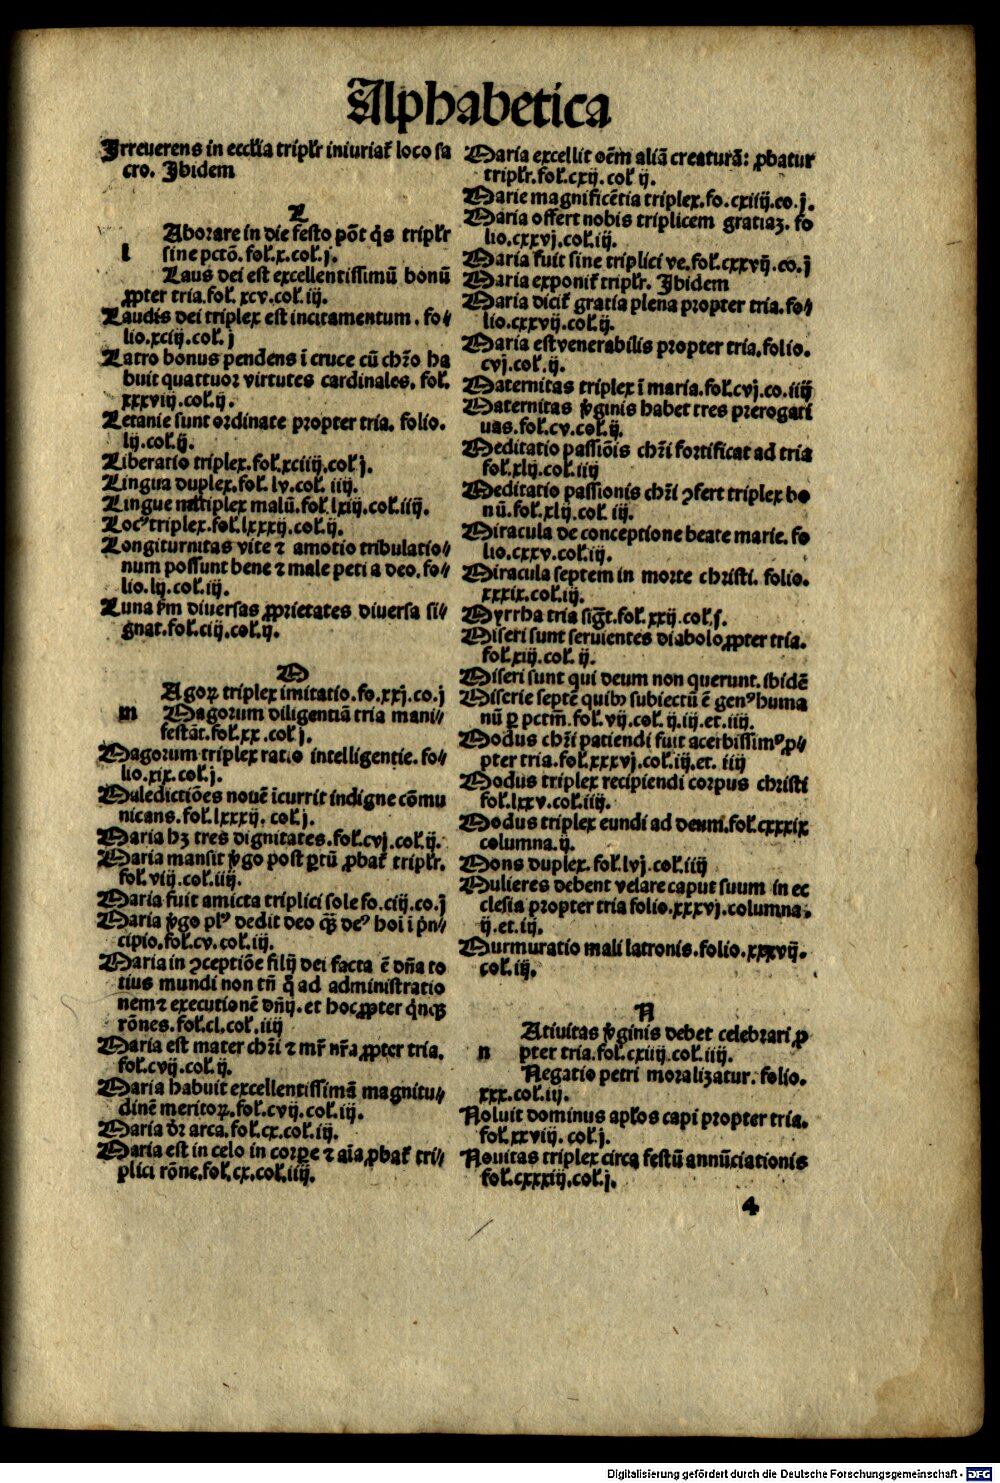 Alphabetica
Irreuerens in eccl'ia triplr iniuriat̉ loco sa
cro. Ibidem
L
Aborare in die festo pōt q̄s triplr
l sine pctō. fol̉.x.col̉.j.
Laus dei est excellentissimū bonū
ꝓpter tria.fol̉. xcv.col̉.iij.
Laudis dei triplex est incitamentum. fo⸗
lio.xciij.col̉. j
Latro bonus pendens ī cruce cū chr̄o ha
buit quattuor virtutes cardinales. fol̉.
xxxviij.col̉.ij.
Letanie sunt ordinate propter tria. folio.
lij.col̉.ij.
Liberatio triplex.fol̉.xciiij.col̉ j.
Lingua duplex.fol̉. lv.col̉. iiij.
Lingue multiplex malū.fol̉.lxiij.col̉.iiij.
Locꝰ triplex.fol̉.lxxxij.col̉.ij.
Longiturnitas vite ⁊ amotio tribulatio⸗
num possunt bene ⁊ male peti a deo. fo⸗
lio.lij.col̉.iij.
Luna ẜm diuersas ꝓprietates diuersa si⸗
gnat.fol̉.ciij.col̉.ij.
M
Agoꝝ triplex imitatio.fo.xxj.co.j
m Magorum diligentiā tria mani⸗
festāt.fol̉.xx.col̉ j.
Magorum triplex ratio intelligentie. fo⸗
lio.xix.col̉.j.
Maledictiōes nouē īcurrit indigne cōmu
nicans.fol̉.lxxxij. col̉.j.
Maria hꝫ tres dignitates.fol̉.cvj.col̉.ij.
Maria mansit v̓go post ꝑtū ꝓbat̉ triplr.
fol̉.viij.col̉.iiij.
Maria fuit amicta triplici sole fo.ciij.co.j
Maria v̓go plꝰ dedit deo qꝫ̄ deꝰ hoi ī pn̄⸗
cipio.fol̉.cv.col̉.iij.
Maria in ꝯceptiōe filij dei facta ē dn̄a to
tius mundi non tn̄ q̄ ad administratio
nem ⁊ executionē dn̄ij.et hoc ꝓpter qͥnqꝫ
rōnes.fol̉.cl.col̉.iiij
Maria est mater chr̄i ⁊ mr̄ nr̄a ꝓpter tria.
fol̉.cvij.col̉.ij.
Maria habuit excellentissimā magnitu⸗
dinē meritoꝝ.fol̉.cvij.col̉.iij.
Maria dr̄ arca.fol̉.cx.col̉.iij.
Maria est in celo in corꝑe ⁊ aīa ꝓbat̉ tri⸗
plici rōne.fol̉.cx.col̉.iiij.
Maria excellit oēm aliā creaturā: ꝓbatur
triplr.fol̉.cxij.col̉ ij.
Marie magnificētia triplex.fo.cxiiij.co.j.
Maria offert nobis triplicem gratiaꝫ. fo
lio.cxxvj.col̉.iij.
Maria fuit sine triplici ve.fol̉.cxxvij.co.j
Maria exponit̉ triplr. Ibidem
Maria dicit̉ gratia plena propter tria.fo⸗
lio.cxxvij.col̉.ij.
Maria est venerabilis propter tria.folio.
cvj.col̉.ij.
Maternitas triplex ī maria.fol̉.cvj.co.iiij
Maternitas v̓ginis habet tres prerogati
uas.fol̉.cv.col̉.ij.
Meditatio passiōis chr̄i fortificat ad tria
fol̉.xlij.col̉.iiij
Meditatio passionis chr̄i ꝯfert triplex bo
nū.fol̉.xlij.col̉. iij.
Miracula de conceptione beate marie. fo
lio.cxxv.col̉.iij.
Miracula septem in morte christi. folio.
xxxix.col̉.iij.
Myrrha tria sigt̄.fol̉.xxij.col̉.j.
Miseri sunt seruientes diabolo ꝓpter tria.
fol̉.xiij.col̉. ij.
Miseri sunt qui deum non querunt.ibidē
Miserie septē quibꝰ subiectū ē genꝰ huma
nū ꝑ pctm̄.fol̉.vij.col̉.ij.iij.et.iiij.
Modus chr̄i patiendi fuit acerbissimꝰ ꝓ⸗
pter tria.fol̉.xxxvj.col̉.iij.et. iiij
Modus triplex recipiendi corpus christi
fol̉.lxxv.col̉.iiij.
Modus triplex eundi ad deum.fol̉.cxxxix
columna.ij.
Mons duplex.fol̉.lvj.col̉.iiij
Mulieres debent velare caput suum in ec
clesia propter tria folio.xxxvj.columna.
ij.et.iij.
Murmuratio mali latronis.folio.xxxvij.
col̉.iij.
N
Atiuitas v̓ginis debet celebrari ꝓ
n pter tria.fol̉.cxiiij.col̉.iiij.
Negatio petri moralizatur. folio.
xxx.col̉.iij.
Noluit dominus apl̄os capi propter tria.
fol̉.xxviij. col̉.j.
Nouitas triplex circa festū annūciationis
fol̉.cxxxiij.col̉.j.
4
Digitalisierung gefördert durch die Deutsche Forschungsgemeinschaft - DFG